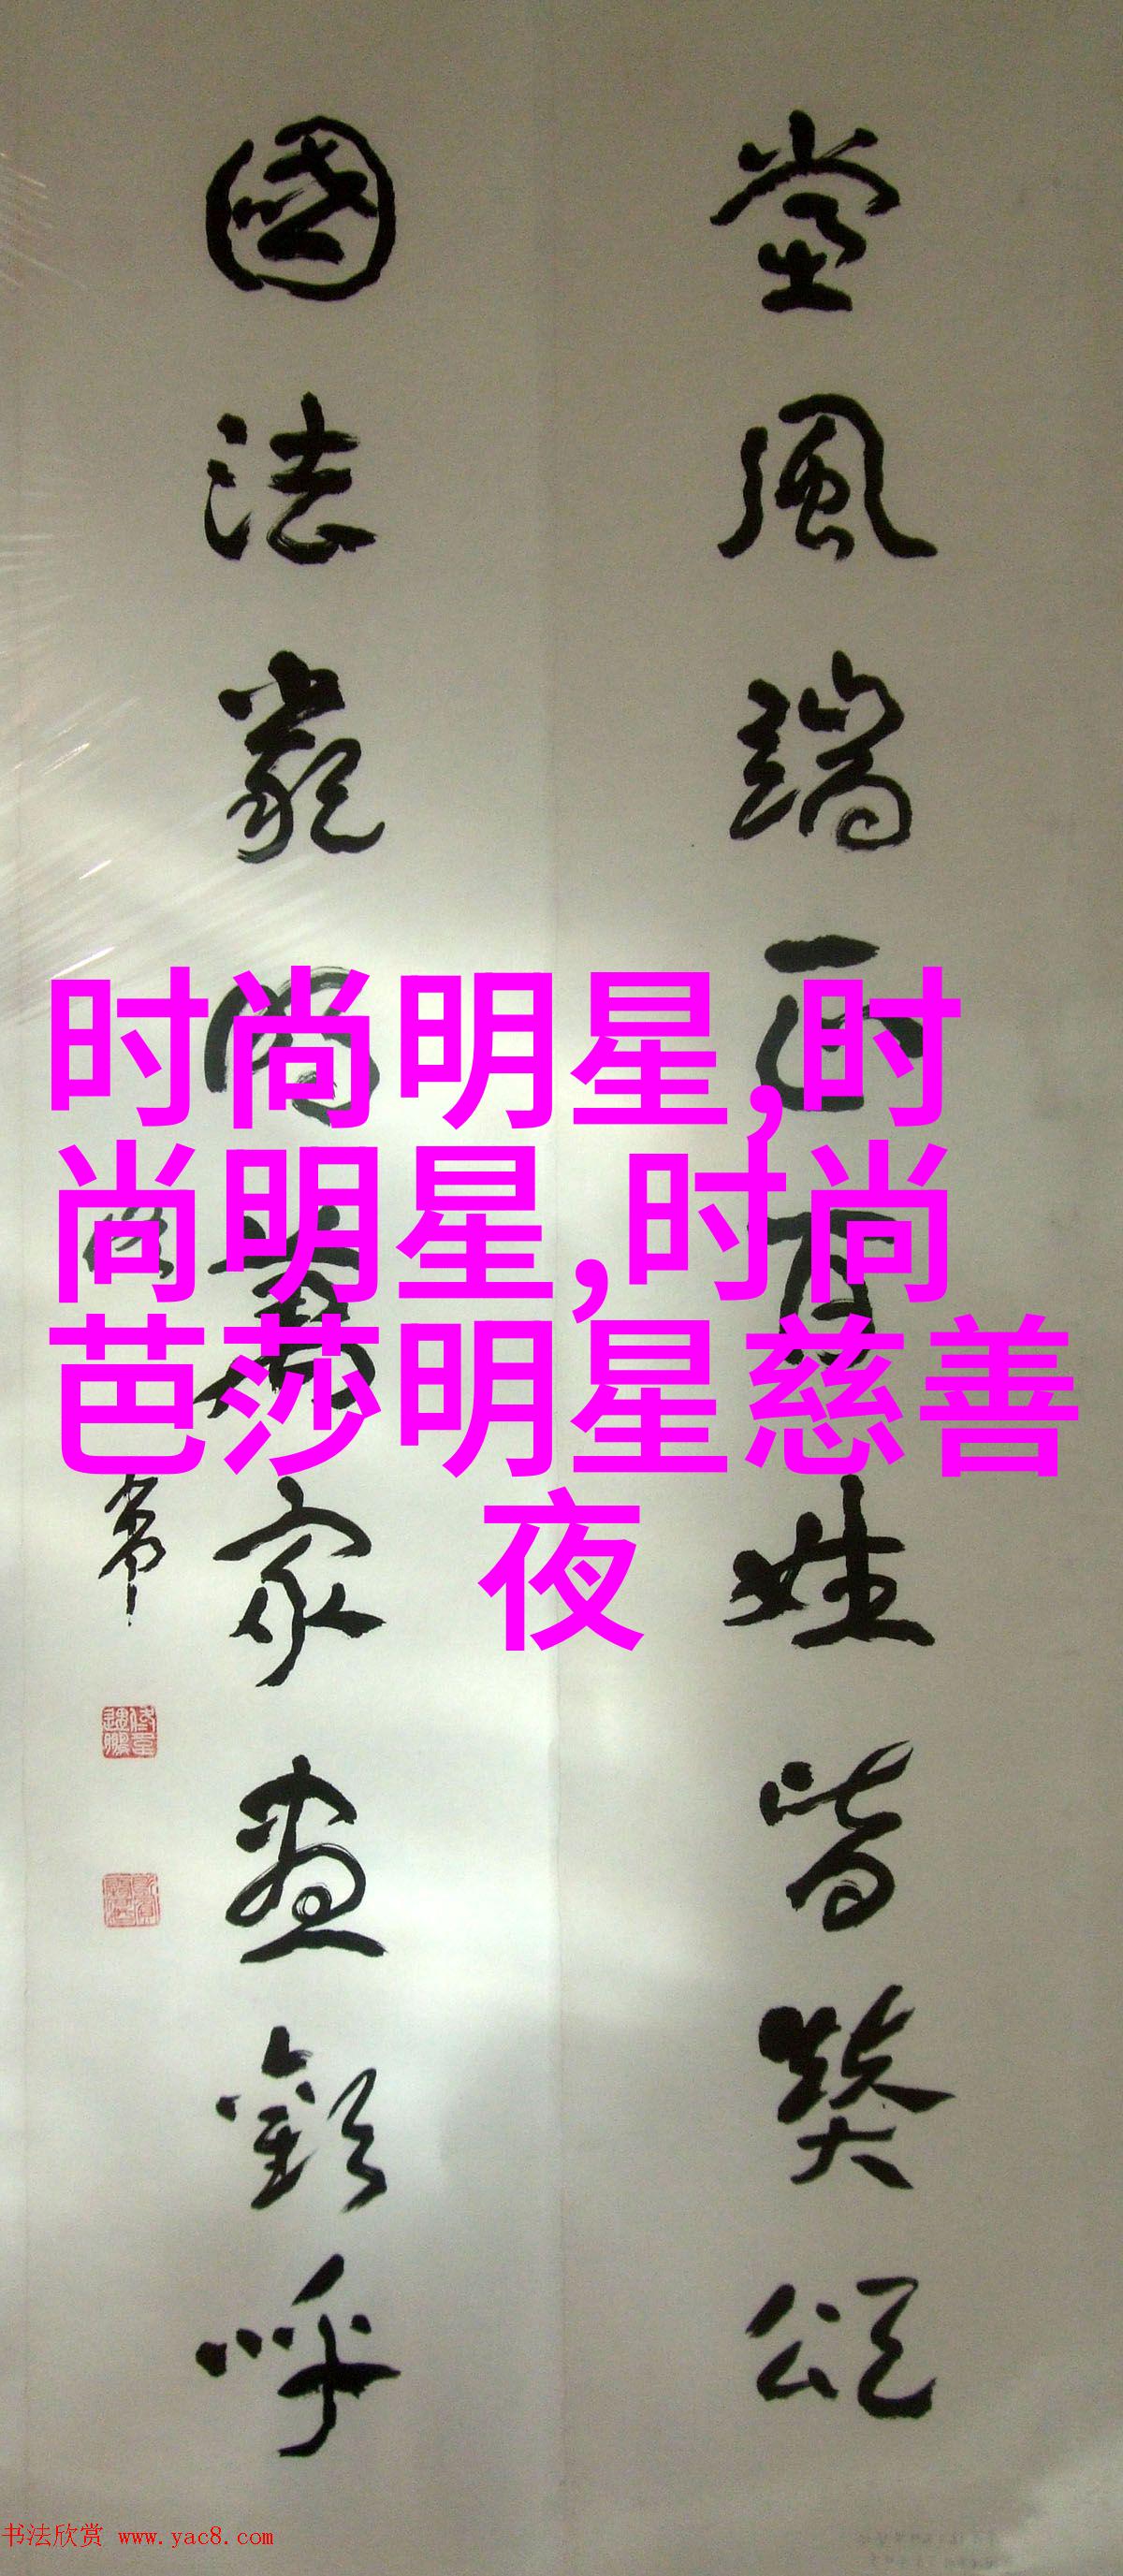 堂風端正百姓皆奬頌
國法嚴明萬家盡歡呼
时尚明星,时
尚明星,时尚
芭莎明星慈善
夜
书法欣赏 www.yac8.com